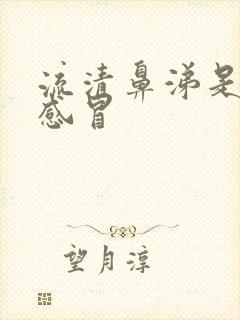 流清鼻涕是
感冒
望月淳